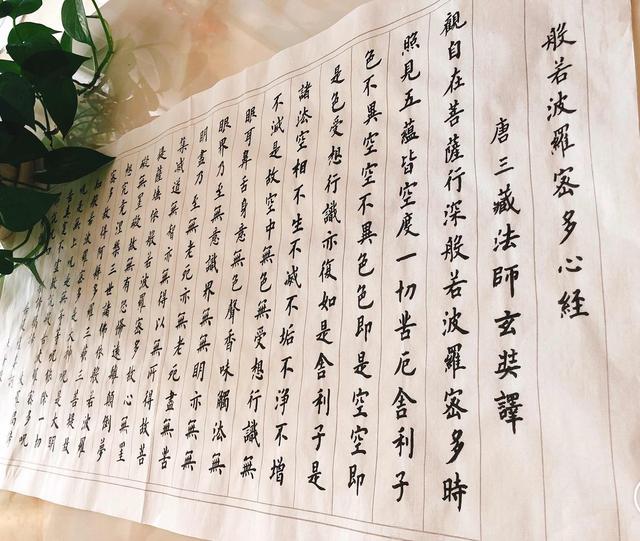 般若波羅密多心經
唐三藏法師玄奘譯
觀自在菩薩行深般若波羅密多時
照見五蘊皆空度一切苦厄舍利子
色不異空空不異色色即是空空即
是色受想行識亦復如是舍利子是
諸法空相不生不滅不垢不淨不增
不減是故空中無色無受想行識無
眼耳鼻舌身意無色聲香味觸法無
眼界乃至無意識界無無明亦無無
明盡乃至無老死亦無老死盡無苦
集滅道無智亦無得以無所得故菩
提薩埵依般若波羅密多故心無罣
礙無罣礙故無有恐怖遠離顛倒夢
想究竟涅槃三世諸佛依般若波羅
密多故得阿耨多羅三藐三菩提故
知般若波羅密多是大神咒是大明
咒是無上咒是無等等咒能除一切
苦真實不虛故說般若波羅密多咒